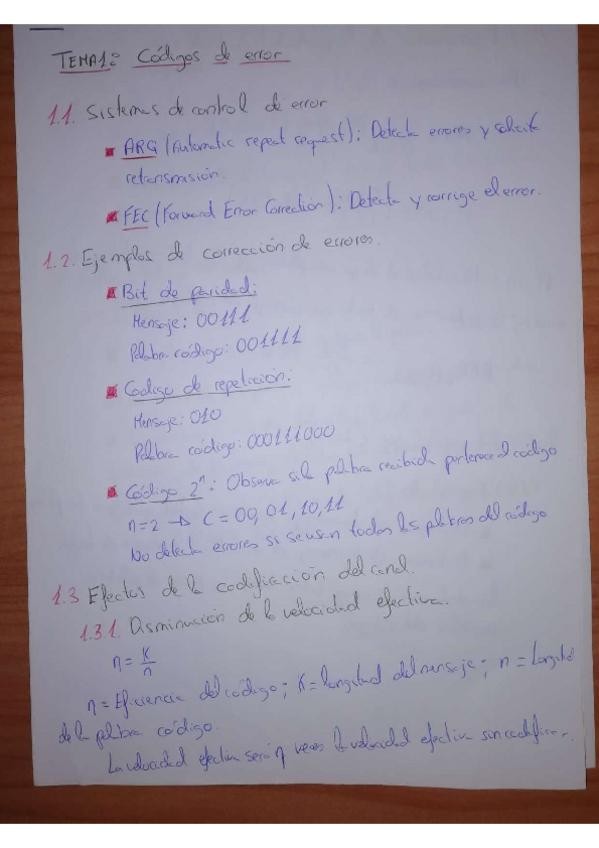 TEMA1: Códigos de error
1.1. Sistemas de control de error
ARQ (Automatic repeat request): Detecta errores y solicita
retransmisión.
FEC (Forward Error Correction): Detecta y corrige el error.
1.2. Ejemplos de corrección de errores.
Bit de paridad:
Mensaje: 00111
Palabra código: 001111
Código de repetición:
Mensaje: 010
Palabra código: 000111000
Código 2ⁿ: Observa si la palabra recibida pertenece al código
n=2 → C = 00, 01, 10, 11
No detecta errores si se usan todas las palabras del código
1.3 Efectos de la codificación del canal.
1.3.1. Disminución de la velocidad efectiva.
η = K/n
η = Eficiencia del código; K = longitud del mensaje; n = longitud
de la palabra código.
La velocidad efectiva será η veces la velocidad efectiva sin codificar.